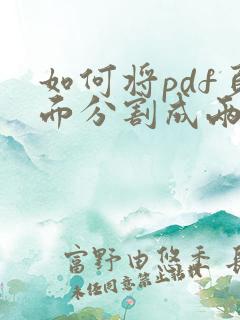 如何将pdf
而分割成两
富野由悠季
未任同意禁止转载